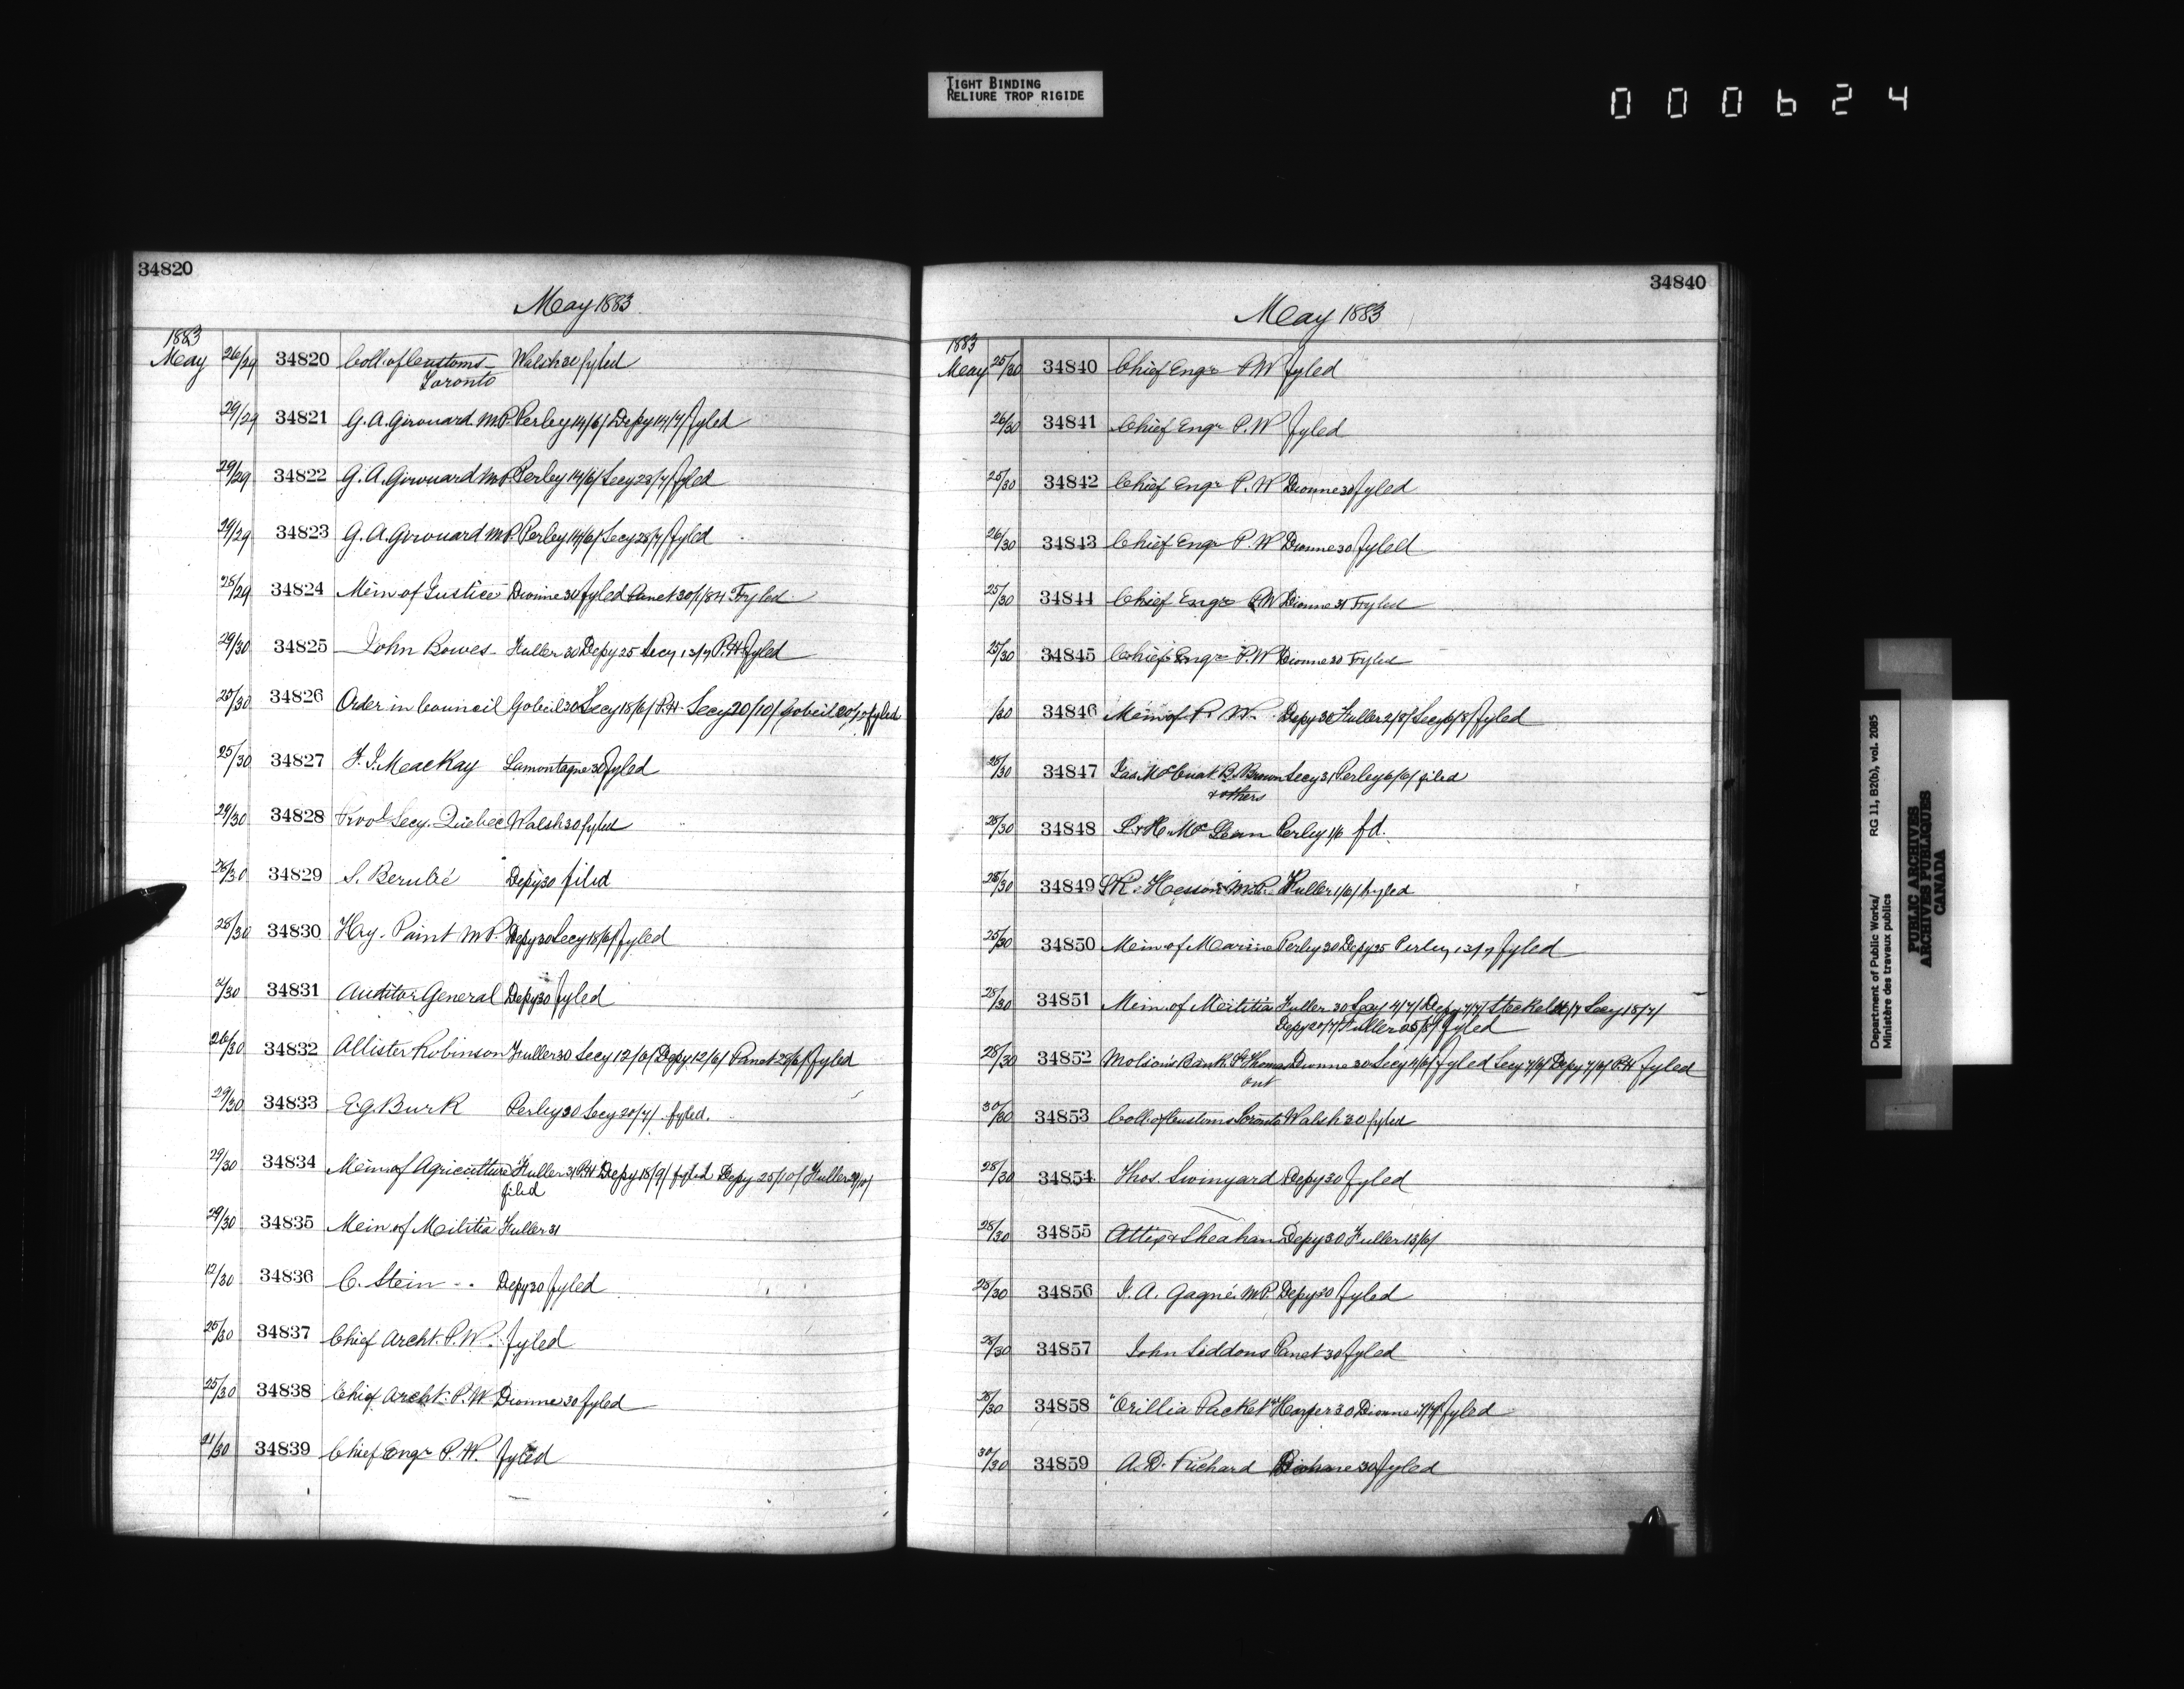 TIGHT BINDING
RELIURE TROP RIGIDE
000624
34820
May 1883
1883
May 26/29 34820 Coll. of Customs Walsh 30 fyled
Toronto
29/29 34821 G. A. Girouard M.P. Perley 14/6/ Depy 14/7/ fyled
29/29 34822 G. A. Girouard M.P. Perley 14/6/ Secy 23/7/ fyled
29/29 34823 G. A. Girouard M.P. Perley 14/6/ Secy 23/7/ fyled
28/29 34824 Min of Justice Dionne 30 fyled Panet 30/1/84 Fyled
29/30 34825 John Bowes Fuller 30 Depy 25 Secy 13/7 P.H fyled
25/30 34826 Order in Council Gobeil 30 Secy 18/6/ P.H Secy 20/10/ Gobeil fyled
25/30 34827 F. J. MacKay Lamontagne 30 fyled
29/30 34828 Provl Secy. Quebec Walsh 30 fyled
26/30 34829 S. Berubé Depy 30 filed
28/30 34830 Hry. Paint M.P. Depy 30 Secy 18/6/ fyled
/30 34831 Auditor General Depy 30 fyled
26/30 34832 Allister Robinson Fuller 30 Secy 12/6/ Depy 12/6/ Panet 28/6/ fyled
29/30 34833 E. G. Burk Perley 30 Secy 20/7/ fyled.
29/30 34834 Min. of Agriculture Fuller 31 P.H Depy 18/9/ fyled Depy 25/10/ Fuller 29/10/
filed
29/30 34835 Min of Militia Fuller 31
12/30 34836 C. Stein Depy 30 fyled
25/30 34837 Chief Archt. P.W. fyled
25/30 34838 Chief Archt. P.W Dionne 30 fyled
21/30 34839 Chief Engr P.W. fyled
34840
May 1883
1883
May 25/30 34840 Chief Engr P.W fyled
26/30 34841 Chief Engr P.W fyled
25/30 34842 Chief Engr P.W Dionne 30 fyled
26/30 34843 Chief Engr P.W Dionne 30 fyled
25/30 34844 Chief Engr P.W Dionne 31 Fyled
25/30 34845 Chief Engr P.W Dionne 30 Fyled
/30 34846 Min of P. W. Depy 30 Fuller 2/8/ Secy 6/8/ fyled
28/30 34847 Jas. McCuat B. Brown Secy 31 Perley 6/6/ filed
& others
28/30 34848 L. & H. McLean Perley 1/6 fd.
28/30 34849 S.R. Hesson M.P. Fuller 1/6/ fyled
25/30 34850 Min of Marine Perley 30 Depy 25 Perley 13/7 fyled
28/30 34851 Min. of Militia Fuller 30 Secy 4/7/ Depy 7/7/ Steckel /7 Secy 18/7/
Depy 20/7/ Fuller 25/8/ fyled
28/30 34852 Molson's Bank St Thomas Dionne 30 Secy 4/6/ fyled Secy 7/6/ Depy 7/6/ P.H fyled
Ont
30/30 34853 Coll. of Customs Toronto Walsh 30 fyled
28/30 34854 Thos. Swinyard Depy 30 fyled
28/30 34855 Sheahan Depy 30 Fuller 13/6/
28/30 34856 J. A. Gagné M.P. Depy 30 fyled
28/30 34857 John Siddons Panet 30 fyled
28/30 34858 "Orillia Packet" Harper 30 Dionne fyled
30/30 34859 A. D. Richard 30 fyled
Department of Public Works/ RG 11, B2(b), vol. 2085
Ministère des travaux publics
PUBLIC ARCHIVES
ARCHIVES PUBLIQUES
CANADA